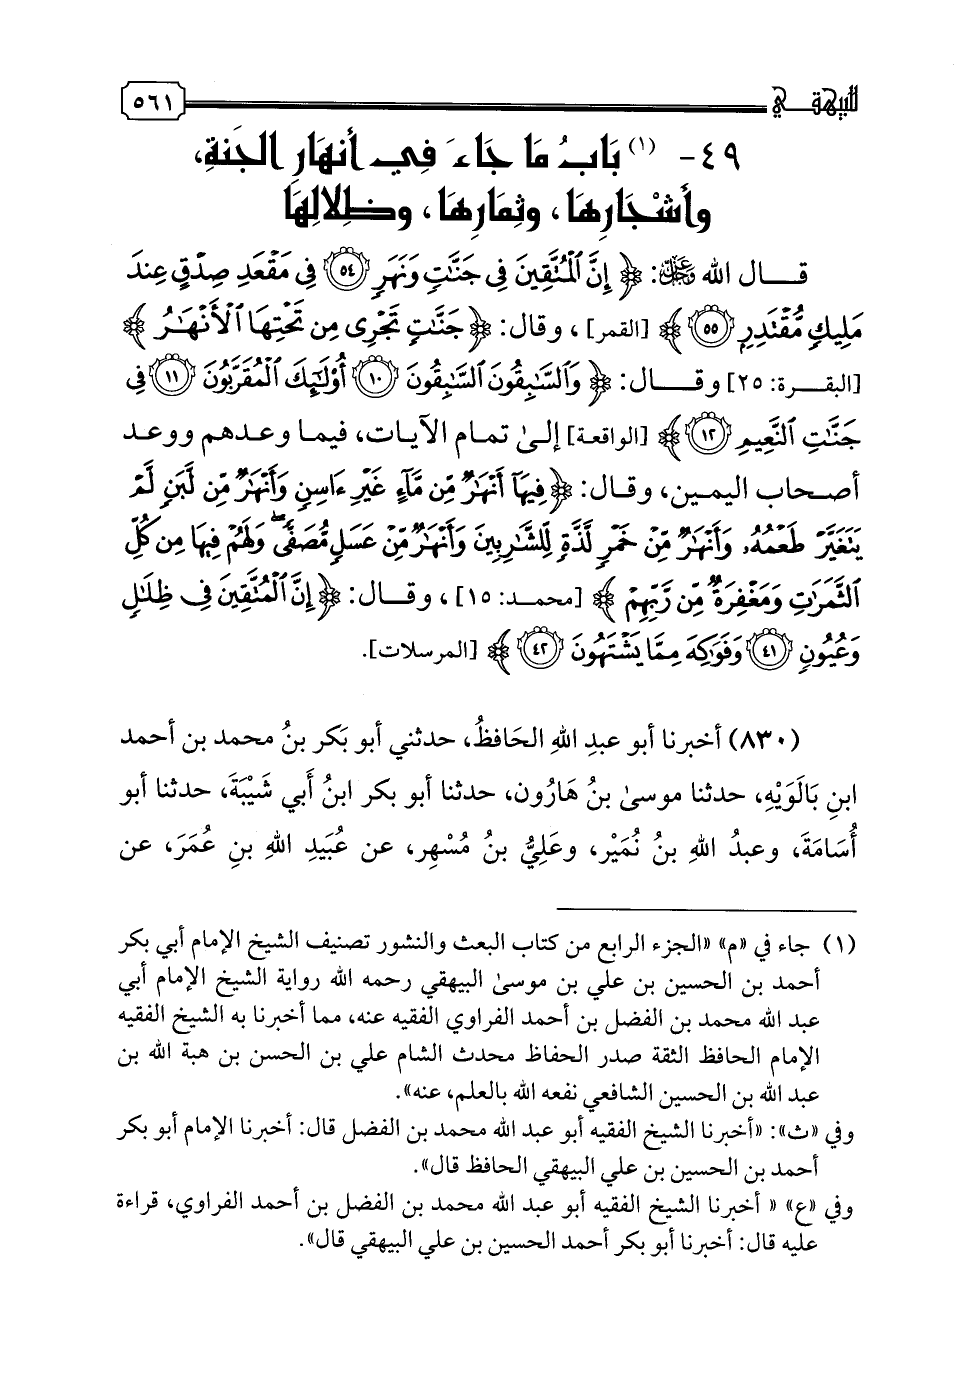 للبيهقي
٥٦١
٤٩- (١) بَابُ مَا جَاءَ فِي أنهَارِ الجَنةِ،
وأشْجَارِهَا، وثِمَارِهَا، وظِلالِهَا
قال الله ﷿: ﴿إِنَّ ٱلْمُتَّقِينَ فِى جَنَّٰتٍ وَنَهَرٍ ٥٤ فِى مَقْعَدِ صِدْقٍ عِندَ
مَلِيكٍ مُّقْتَدِرٍ ٥٥﴾ [القمر]، وقال: ﴿جَنَّٰتٍ تَجْرِى مِن تَحْتِهَا ٱلْأَنْهَٰرُ﴾
[البقرة: ٢٥] وقال: ﴿وَٱلسَّٰبِقُونَ ٱلسَّٰبِقُونَ ١٠ أُوْلَٰٓئِكَ ٱلْمُقَرَّبُونَ ١١ فِى
جَنَّٰتِ ٱلنَّعِيمِ ١٢﴾ [الواقعة] إلىٰ تمام الآيات، فيما وعدهم ووعد
أصحاب اليمين، وقال: ﴿فِيهَآ أَنْهَٰرٌ مِّن مَّآءٍ غَيْرِ ءَاسِنٍ وَأَنْهَٰرٌ مِّن لَّبَنٍ لَّمْ
يَتَغَيَّرْ طَعْمُهُۥ وَأَنْهَٰرٌ مِّنْ خَمْرٍ لَّذَّةٍ لِّلشَّٰرِبِينَ وَأَنْهَٰرٌ مِّنْ عَسَلٍ مُّصَفًّى ۖ وَلَهُمْ فِيهَا مِن كُلِّ
ٱلثَّمَرَٰتِ وَمَغْفِرَةٌ مِّن رَّبِّهِمْ﴾ [محمد: ١٥]، وقال: ﴿إِنَّ ٱلْمُتَّقِينَ فِى ظِلَٰلٍ
وَعُيُونٍ ٤١ وَفَوَٰكِهَ مِمَّا يَشْتَهُونَ ٤٢﴾ [المرسلات].
(٨٣٠) أخبرنا أبو عبدِ اللهِ الحَافظُ، حدثني أبو بَكر بنُ محمد بن أحمد
ابنِ بَالَوَيْهِ، حدثنا موسىٰ بنُ هَارُون، حدثنا أبو بكر ابنُ أَبي شَيْبَةَ، حدثنا أبو
أُسَامَةَ، وعبدُ اللهِ بنُ نُمَيْر، وعَلِيُّ بنُ مُسْهِر، عن عُبَيدِ اللهِ بنِ عُمَرَ، عن
(١) جاء في «م» «الجزء الرابع من كتاب البعث والنشور تصنيف الشيخ الإمام أبي بكر
أحمد بن الحسين بن علي بن موسىٰ البيهقي رحمه الله رواية الشيخ الإمام أبي
عبد الله محمد بن الفضل بن أحمد الفراوي الفقيه عنه، مما أخبرنا به الشيخ الفقيه
الإمام الحافظ الثقة صدر الحفاظ محدث الشام علي بن الحسن بن هبة الله بن
عبد الله بن الحسين الشافعي نفعه الله بالعلم، عنه».
وفي «ث»: «أخبرنا الشيخ الفقيه أبو عبد الله محمد بن الفضل قال: أخبرنا الإمام أبو بكر
أحمد بن الحسين بن علي البيهقي الحافظ قال».
وفي «ع» « أخبرنا الشيخ الفقيه أبو عبد الله محمد بن الفضل بن أحمد الفراوي، قراءة
عليه قال: أخبرنا أبو بكر أحمد الحسين بن علي البيهقي قال».